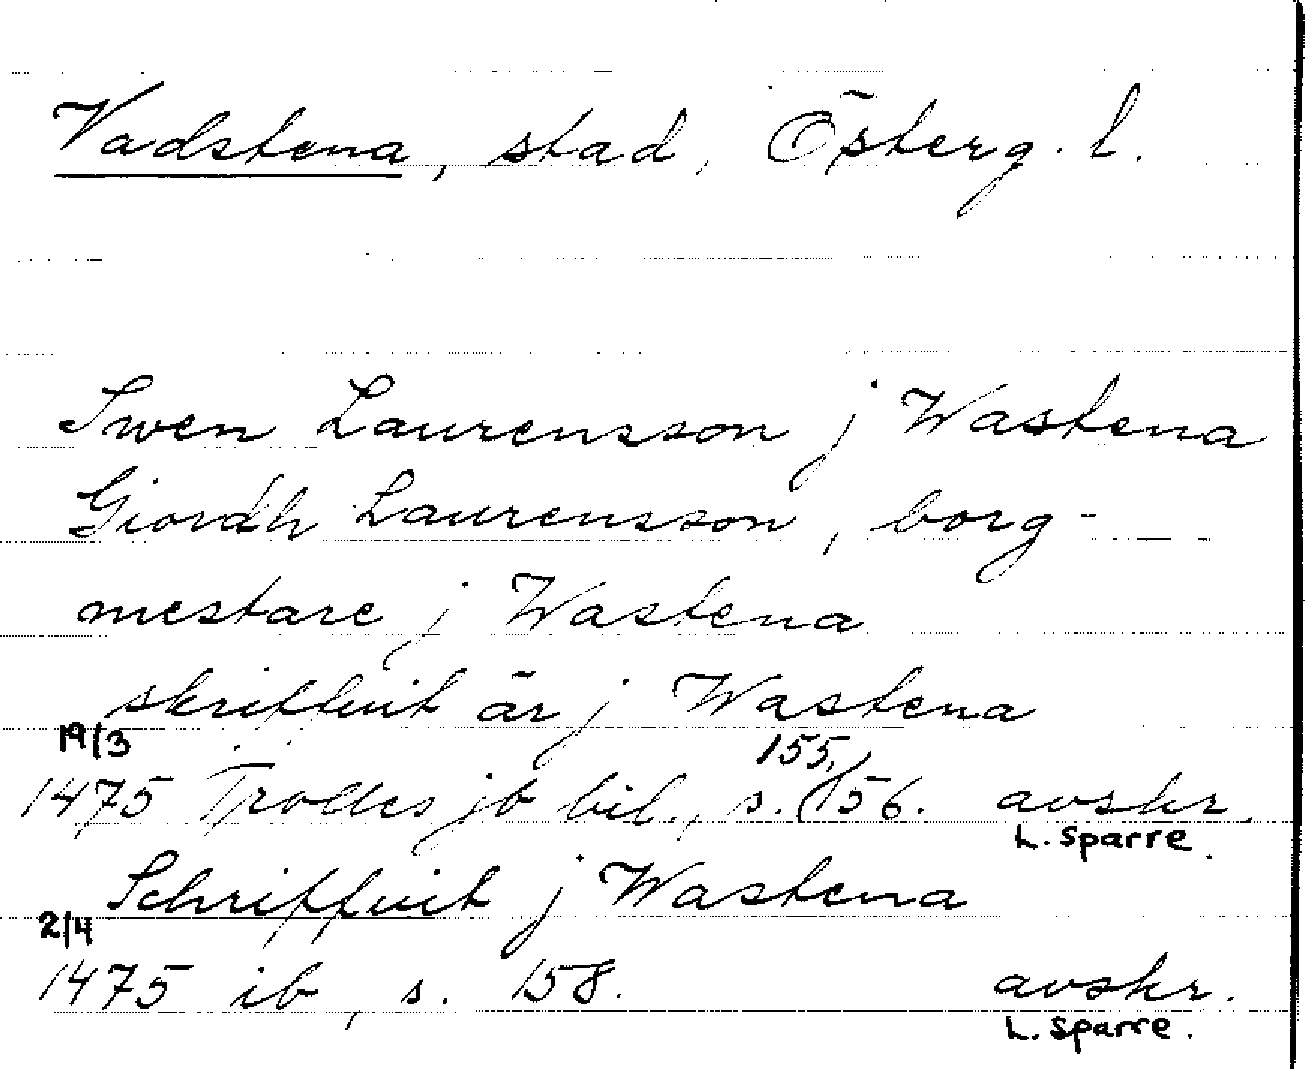 Vadstena, stad, Österg. l.
Swen Laurensson j Wastena
Giordh Laurensson, borg-
mestare j Wastena
skriffuit är j Wastena
19/3
155,
1475 Trolles jb bil., s. 156. avskr.
L. Sparre.
Schriffuit j Wastena
2/4
1475 ib, s. 158. avskr.
L. Sparre.